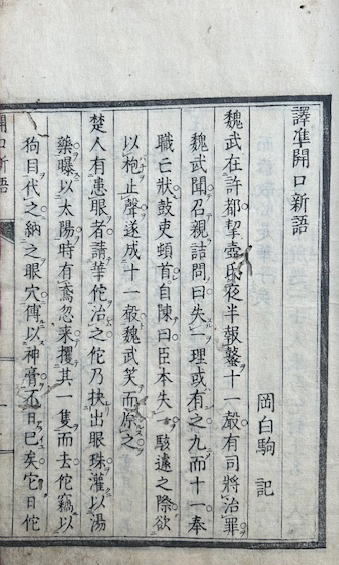 譯準開口新語
岡白駒 記
魏武在許都挈壺氏夜半報鼕十一𣪊有司將治罪
魏武聞召親詰問曰失一理或有之九而十一奉
職亡狀鼓吏頓首自陳曰臣本失一駭遽之際欲
以枹止聲遂成十一𣪊魏武笑而原之
楚人有患眼者請華佗治之佗乃抉出眼珠灌以湯
藥曝以太陽時有鳶忽来攫其一隻而去佗竊以
狗目代之納之眼穴傳以神膏不日已矣它日佗
開口新語